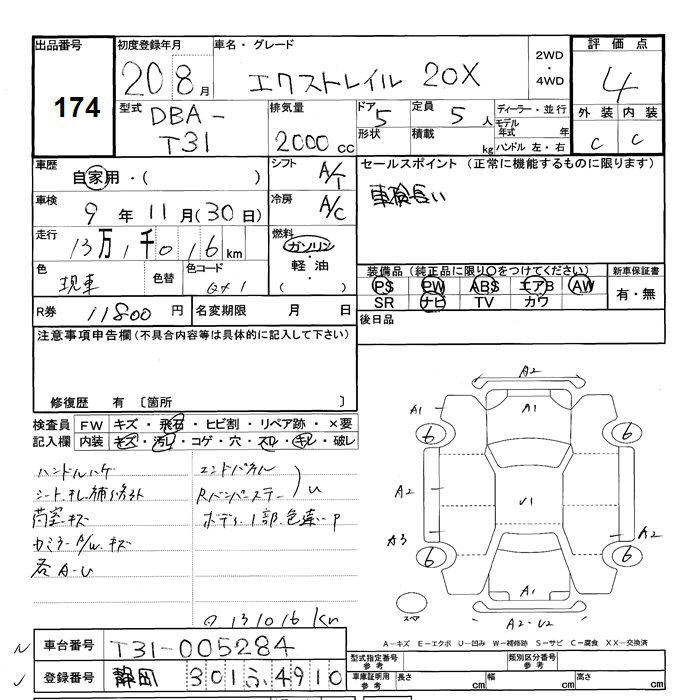 出品番号 174
初度登録年月 20 8月
車名・グレード エクストレイル 20X
2WD・4WD
評価点 4
外装 C 内装 C
型式 DBA-T31
排気量 2000 cc
ドア 5
形状
定員 5人
積載 kg
ディーラー・並行
モデル年式 年
ハンドル 左・右
車歴 自家用・( )
車検 9年11月(30日)
走行 13万1千016km
色 現車
色替
色コード
シフト A/T
冷房 A/C
燃料 ガソリン・軽油・( )
セールスポイント (正常に機能するものに限ります)
車検長い
装備品 (純正品に限り○をつけてください)
PS PW ABS エアB AW
SR ナビ TV カワ
新車保証書 有・無
後日品
R券 11800円
名変期限 月 日
注意事項申告欄 (不具合内容等は具体的に記入して下さい)
修復歴 有 〔箇所 〕
検査員記入欄
FW キズ・飛石・ヒビ割・リペア跡・×要
内装 キズ・汚レ・コゲ・穴・スレ・キレ・破レ
ハンドルハゲ
エンドパネル
Rバンパーステー
U
ボデー1部色違いP
各A-U
131016 Km
A2
A1
A1
6
6
A2
U1
A3
A2
6
6
A1
スペア
A2-U2
A-キズ E-エクボ U-凹み W-補修跡 S-サビ C-腐食 XX-交換済
車台番号 T31-005284
登録番号 静岡 301ふ4910
型式指定番号 参考
類別区分番号 参考
車庫証明用 参考 長さ cm 幅 cm 高さ cm